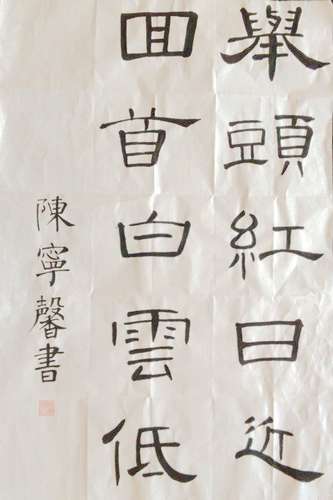 舉頭紅日近
回首白雲低
陳寧馨書